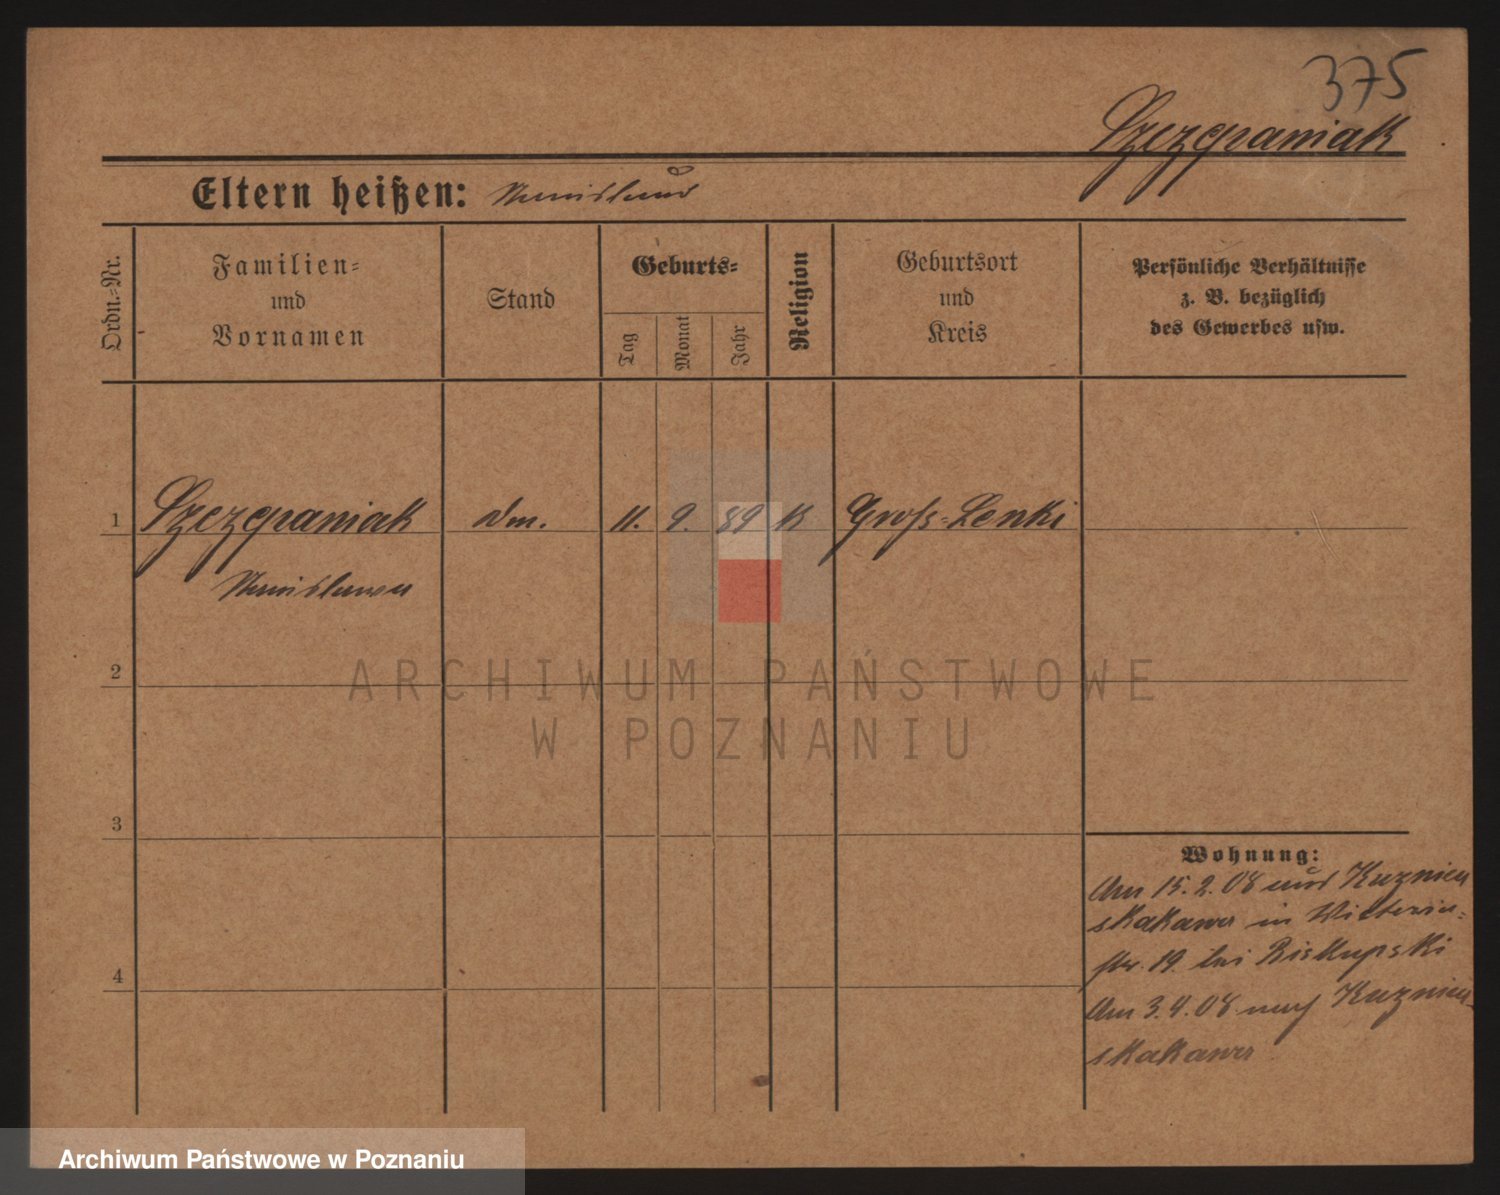 375
Szczepaniak
Eltern heißen: Stanislaus
Ordn.-Nr.
Familien-
und
Vornamen
Stand
Geburts-
Tag
Monat
Jahr
Religion
Geburtsort
und
Kreis
Persönliche Verhältnisse
z. B. bezüglich
des Gewerbes usw.
1 Szczepaniak 11. 9. 89 K Groß-Lenki
Stanislawa
2
ARCHIWUM PAŃSTWOWE
W POZNANIU
3
4
Wohnung:
Am 15.2.08 Kuznica
skakawa in Victoria-
str. 19. bei Biskupski
Am 3.4.08 nach Kuznica
skakawa
Archiwum Państwowe w Poznaniu